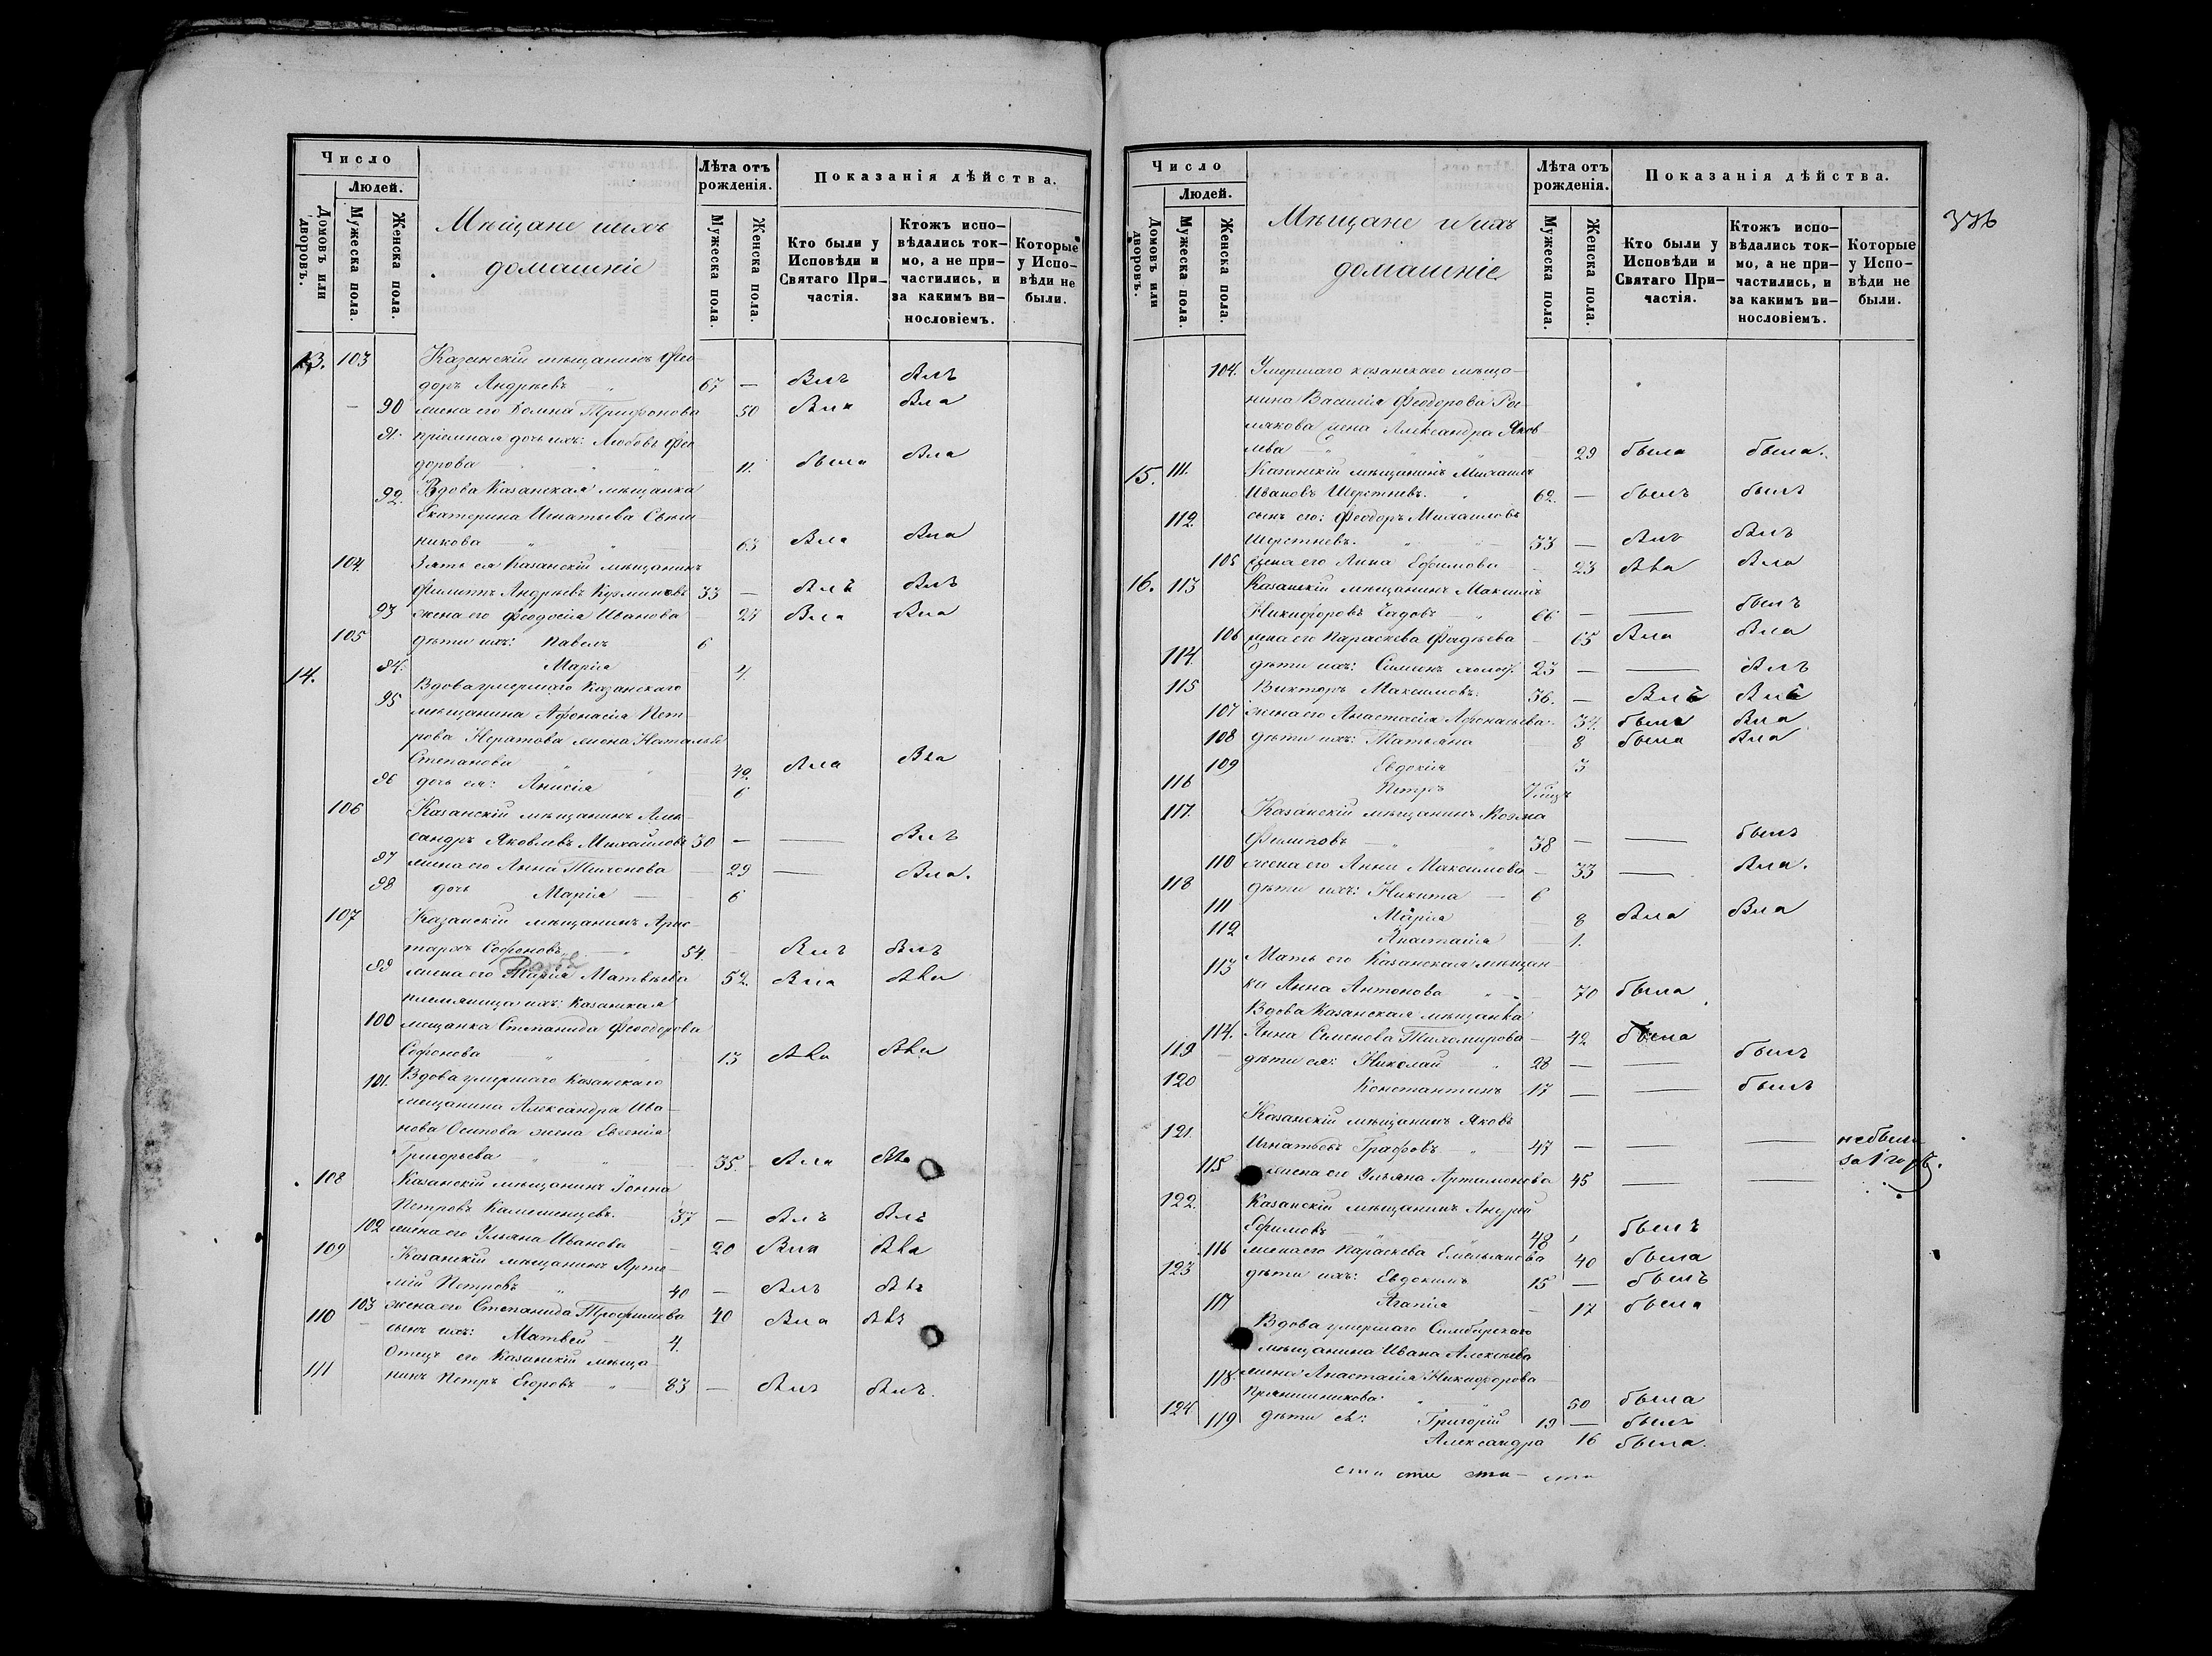 Число
Людей.
Домовъ или дворовъ.
Мужеска пола.
Женска пола.
Мѣщане и ихъ
домашніе
Лѣта отъ рожденія.
Мужеска пола.
Женска пола.
Показанія дѣйства.
Кто были у Исповѣди и Святаго Причастія.
Ктожъ исповѣдались токмо, а не причастились, и за какимъ винословіемъ.
Которые у Исповѣди не были.
13. 103 Казанскій мѣщанинъ Фео-
доръ Андреевъ 67 — былъ былъ
90 жена его Трифонова 50 была была
91. пріемная дочь ихъ: Любовь Фео-
дорова 11. была была
92. Вдова Казанская мѣщанка
Екатерина Игнатьева
никова 63 была была
104. Зять ея Казанскій мѣщанинъ
Филиппъ Андреевъ Кузминовъ 33 — былъ былъ
93 жена его Феодосія Иванова 27 была была
105 дѣти ихъ: Павелъ 6
94. Марія 4.
14. Вдова умершаго Казанскаго
95 мѣщанина Афонасія Пет-
рова жена Наталья
Степанова 42. была была
96 дочь ея: Анисія 6
106 Казанскій мѣщанинъ Алек-
сандръ Яковлевъ Михайловъ 30 — — былъ
97 жена его Анна Тихонова — 29 — была.
98 дочь Марія — 6
107 Казанскій мѣщанинъ Арис-
тархъ Софоновъ 54. - былъ былъ
99 жена его Матвѣева 52. была была
племяница ихъ: Казанская
100 мещанка Степанида Феодорова
Софонова 13 была была
101. Вдова умершаго Казанскаго
мещанина Александра Ива-
нова Осипова жена Евгенія
Григорьева 35. была была
108 Казанскій мѣщанинъ
Петровъ Каменщевъ. 37 — былъ былъ
102 жена его Ульяна Иванова 20 была была
109 Казанскій мѣщанинъ Арте-
мій Петровъ 40 — былъ былъ
103 жена его Степанида Трофимова 40 была
110 сынъ ихъ: Матвей 4.
Отецъ его Казанскій мѣща-
111 нинъ Петръ Егоровъ 83 — былъ былъ.
376
Число
Людей.
Домовъ или дворовъ.
Мужеска пола.
Женска пола.
Мѣщане и ихъ
домашніе
Лѣта отъ рожденія.
Мужеска пола.
Женска пола.
Показанія дѣйства.
Кто были у Исповѣди и Святаго Причастія.
Ктожъ исповѣдались токмо, а не причастились, и за какимъ винословіемъ.
Которые у Исповѣди не были.
104. Умершаго казанскаго мѣща-
нина Василія Феодорова
жена Александра Яков-
лева 29 была была.
15. 111. Казанскій мѣщанинъ Михаилъ
Ивановъ Шерстневъ. 62. — былъ былъ
112. сынъ его: Феодоръ Михаиловъ
Шерстневъ. 33 — былъ былъ
105 жена его Анна Ефимова - 23 была была
16. 113 Казанскій мѣщанинъ Максимъ
Никифоровъ 66 — — былъ
106 жена его Параскева Фадѣева - 65 была была
114. дѣти ихъ: 23 — — былъ
115 Викторъ Максимовъ. 36. — былъ былъ
107 жена его Анастасія Афонасьева. 34. была была
108 дѣти ихъ: Татьяна 8 была была
109 Евдокія 3
116 Петръ
117. Казанскій мѣщанинъ Козма
Филиповъ — 38 — — былъ
110 жена его Анна Максимова - 33 — была.
118 дѣти ихъ: Никита — 6
111 Марія 8 была была
112 Анастасія 1.
Мать его Казанская мѣщан-
113 ка Анна Антонова 70 была
Вдова Казанская мѣщанка
114. Анна Семенова Тихомирова 42 была
119 дѣти ея: Николай 28 — — былъ
120 Константинъ 17 — — былъ
Казанскій мѣщанинъ Яковъ
121. Игнатьевъ Графовъ 47 — — — небыли
115 жена его Ульяна Артамонова 45 — — за 1 годъ.
122. Казанскій мѣщанинъ Андрей
Ефимовъ 48 былъ
116 жена его Параскева Емельянова 40 была
123 дѣти ихъ: Евдокимъ 15 — былъ
117 Агапія — 17 была
Вдова умершаго Симбирскаго
мѣщанина Ивана Алексѣева
118. жена Анастасія Никифорова
Прянишникова. 50 была
124 дѣти ея: Григорій 19 — былъ
119 Александра 16 была.